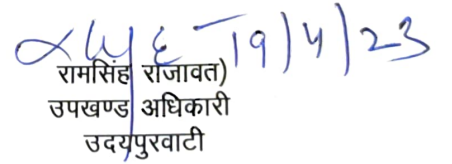 19/4/23
रामसिंह राजावत)
उपखण्ड अधिकारी
उदयपुरवाटी